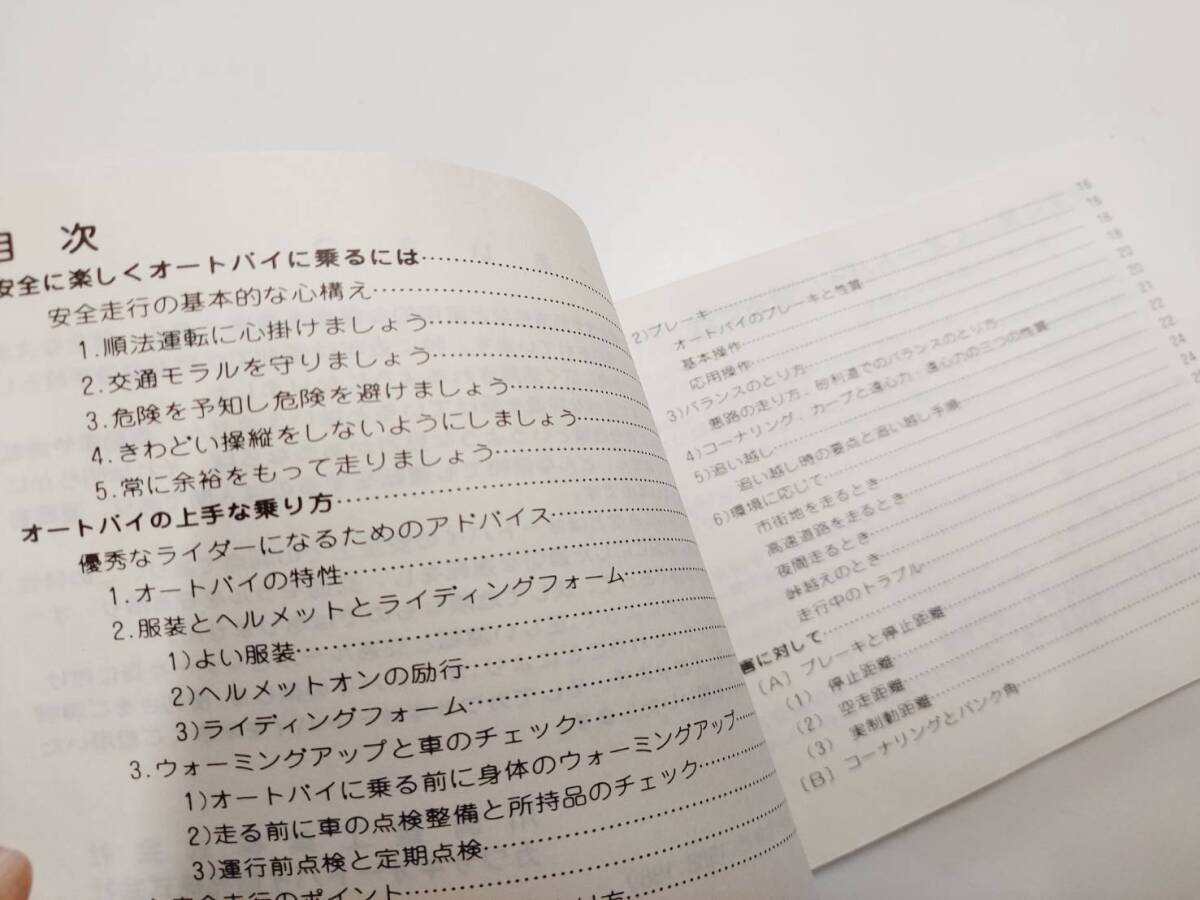 目 次
安全に楽しくオートバイに乗るには
安全走行の基本的な心構え
1.順法運転に心掛けましょう
2.交通モラルを守りましょう
3.危険を予知し危険を避けましょう
4.きわどい操縦をしないようにしましょう
5.常に余裕をもって走りましょう
オートバイの上手な乗り方
優秀なライダーになるためのアドバイス
1.オートバイの特性
2.服装とヘルメットとライディングフォーム
1)よい服装
2)ヘルメットオンの励行
3)ライディングフォーム
3.ウォーミングアップと車のチェック
1)オートバイに乗る前に身体のウォーミングアップ
2)走る前に車の点検整備と所持品のチェック
3)運行前点検と定期点検
安全走行のポイント
り方
2)ブレーキ……16
オートバイのブレーキと性質……16
基本操作……18
応用操作……18
3)バランスのとり方……20
悪路の走り方、砂利道でのバランスのとり方……20
4)コーナリング、カーブと遠心力・遠心力の三つの性質……21
5)追い越し……22
追い越し時の要点と追い越し手順……22
6)環境に応じて……24
市街地を走るとき……24
高速道路を走るとき
夜間走るとき
峠越えのとき
走行中のトラブル
害に対して
(A) ブレーキと停止距離
(1) 停止距離
(2) 空走距離
(3) 実制動距離
(B) コーナリングとバンク角